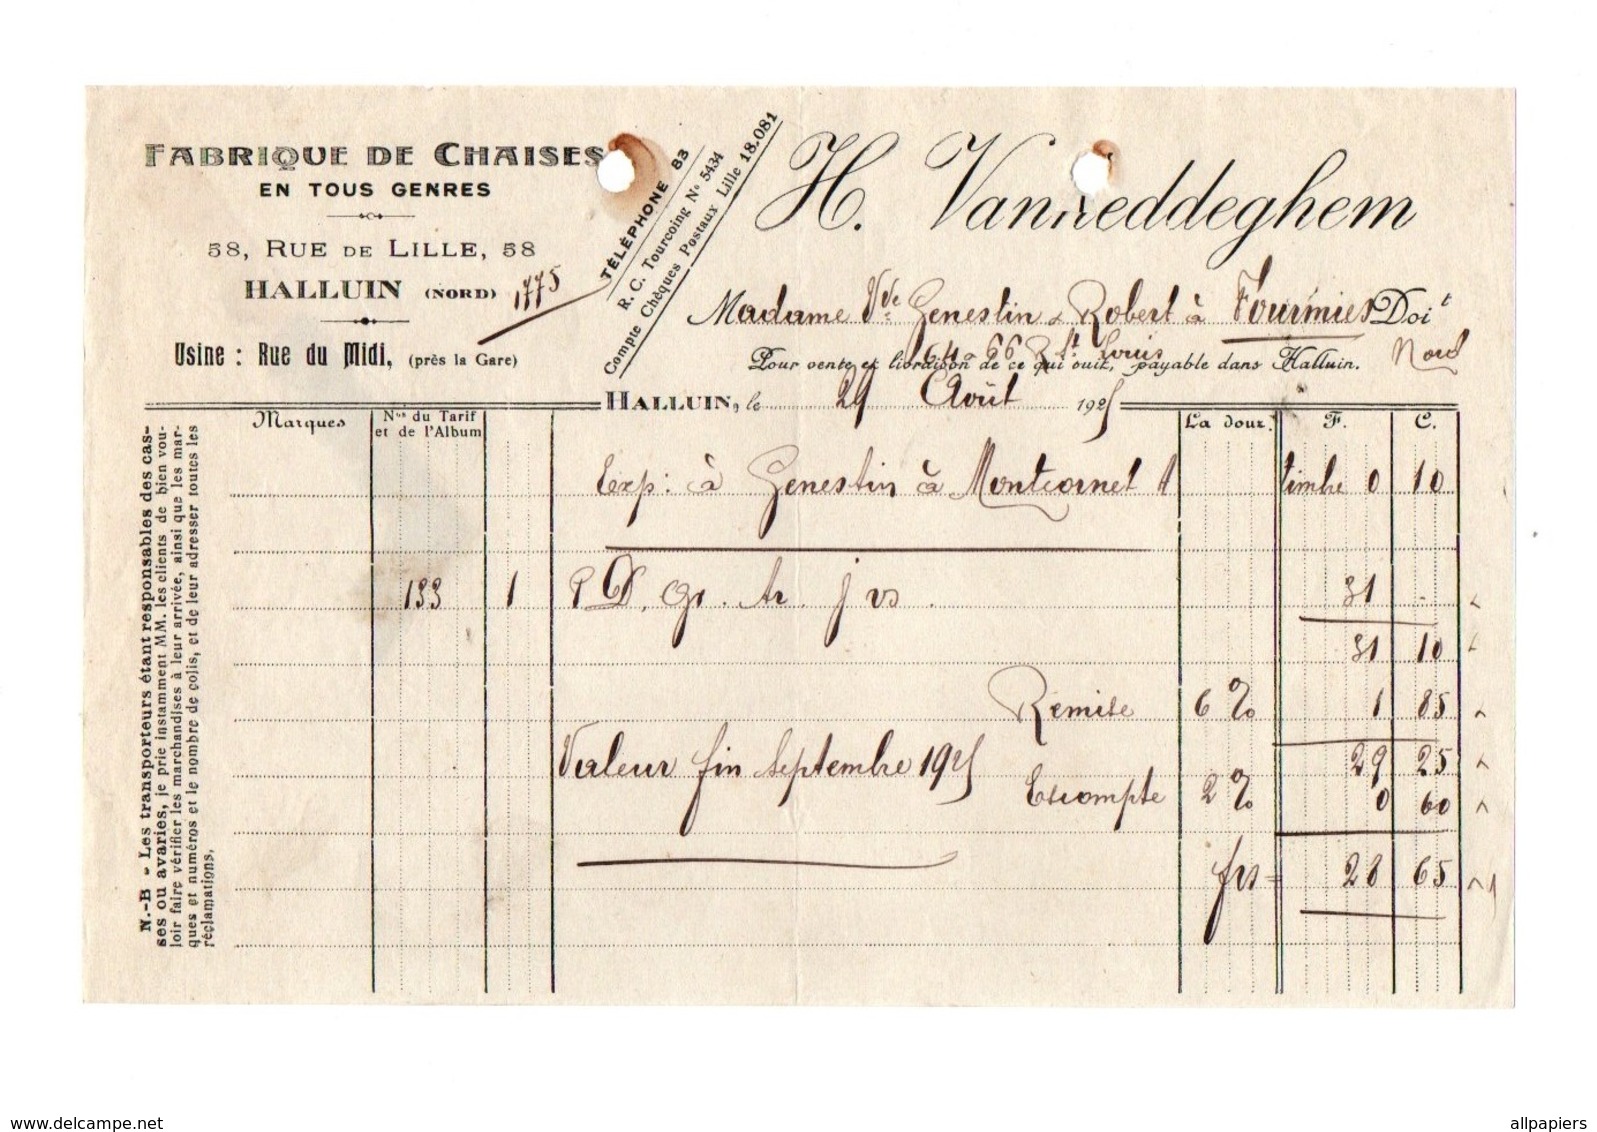 FABRIQUE DE CHAISES
EN TOUS GENRES
58, RUE DE LILLE, 58
HALLUIN (NORD)
1775
Usine : Rue du Midi, (près la Gare)
TÉLÉPHONE 83
R. C. Tourcoing No 5434
Compte Chèques Postaux Lille 18.081
H. Vanreddeghem
Madame Vve Genestin & Robert à Fourmies Doit
64-66 R. St. Louis Nord
Pour vente et livraison de ce qui suit, payable dans Halluin.
HALLUIN, le 29 Août 1925
Marques Nos du Tarif et de l'Album La douz. F. C.
Exp: à Genestin à Montcornet timbre 0 10
133 1 P D. gr. tr. j vs. 31 .
31 10
Remise 6 % 1 85
Valeur fin Septembre 1925 29 25
Escompte 2 % 0 60
frs = 28 65
N.-B - Les transporteurs étant responsables des cas-
ses ou avaries, je prie instamment MM. les clients de bien vou-
loir faire vérifier les marchandises à leur arrivée, ainsi que les mar-
ques et numéros et le nombre de colis, et de leur adresser toutes les
réclamations.
www.delcampe.net
allpapiers